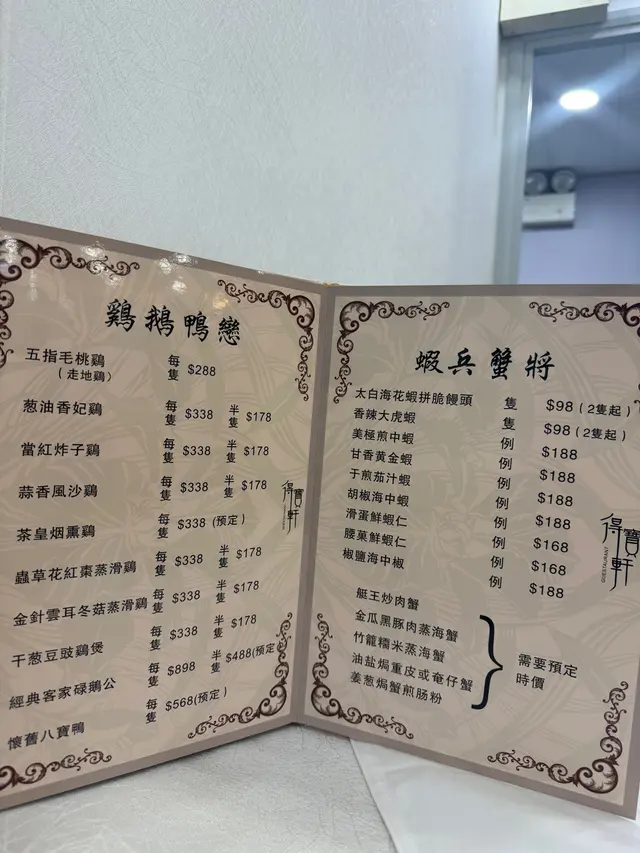 鷄鵝鴨戀
五指毛桃鷄 每隻 $288
(走地鷄)
葱油香妃鷄 每隻 $338 半隻 $178
當紅炸子鷄 每隻 $338 半隻 $178
蒜香風沙鷄 每隻 $338 半隻 $178
茶皇烟熏鷄 每隻 $338 (預定)
蟲草花紅棗蒸滑鷄 每隻 $338 半隻 $178
金針雲耳冬菇蒸滑鷄 每隻 $338 半隻 $178
干葱豆豉鷄煲 每隻 $338 半隻 $178
經典客家碌鵝公 每隻 $898 半隻 $488(預定
懷舊八寶鴨 每隻 $568(預定)
得寶軒
蝦兵蟹將
太白海花蝦拼脆饅頭 隻 $98 (2隻起)
香辣大虎蝦 隻 $98 (2隻起)
美極煎中蝦 例 $188
甘香黃金蝦 例 $188
于煎茄汁蝦 例 $188
胡椒海中蝦 例 $188
滑蛋鮮蝦仁 例 $168
腰菓鮮蝦仁 例 $168
椒鹽海中椒 例 $188
艇王炒肉蟹
金瓜黑豚肉蒸海蟹
竹龍糯米蒸海蟹
油盐焗重皮或奄仔蟹
姜葱焗蟹煎肠粉
需要預定
時價
得寶軒
RESTAURANT